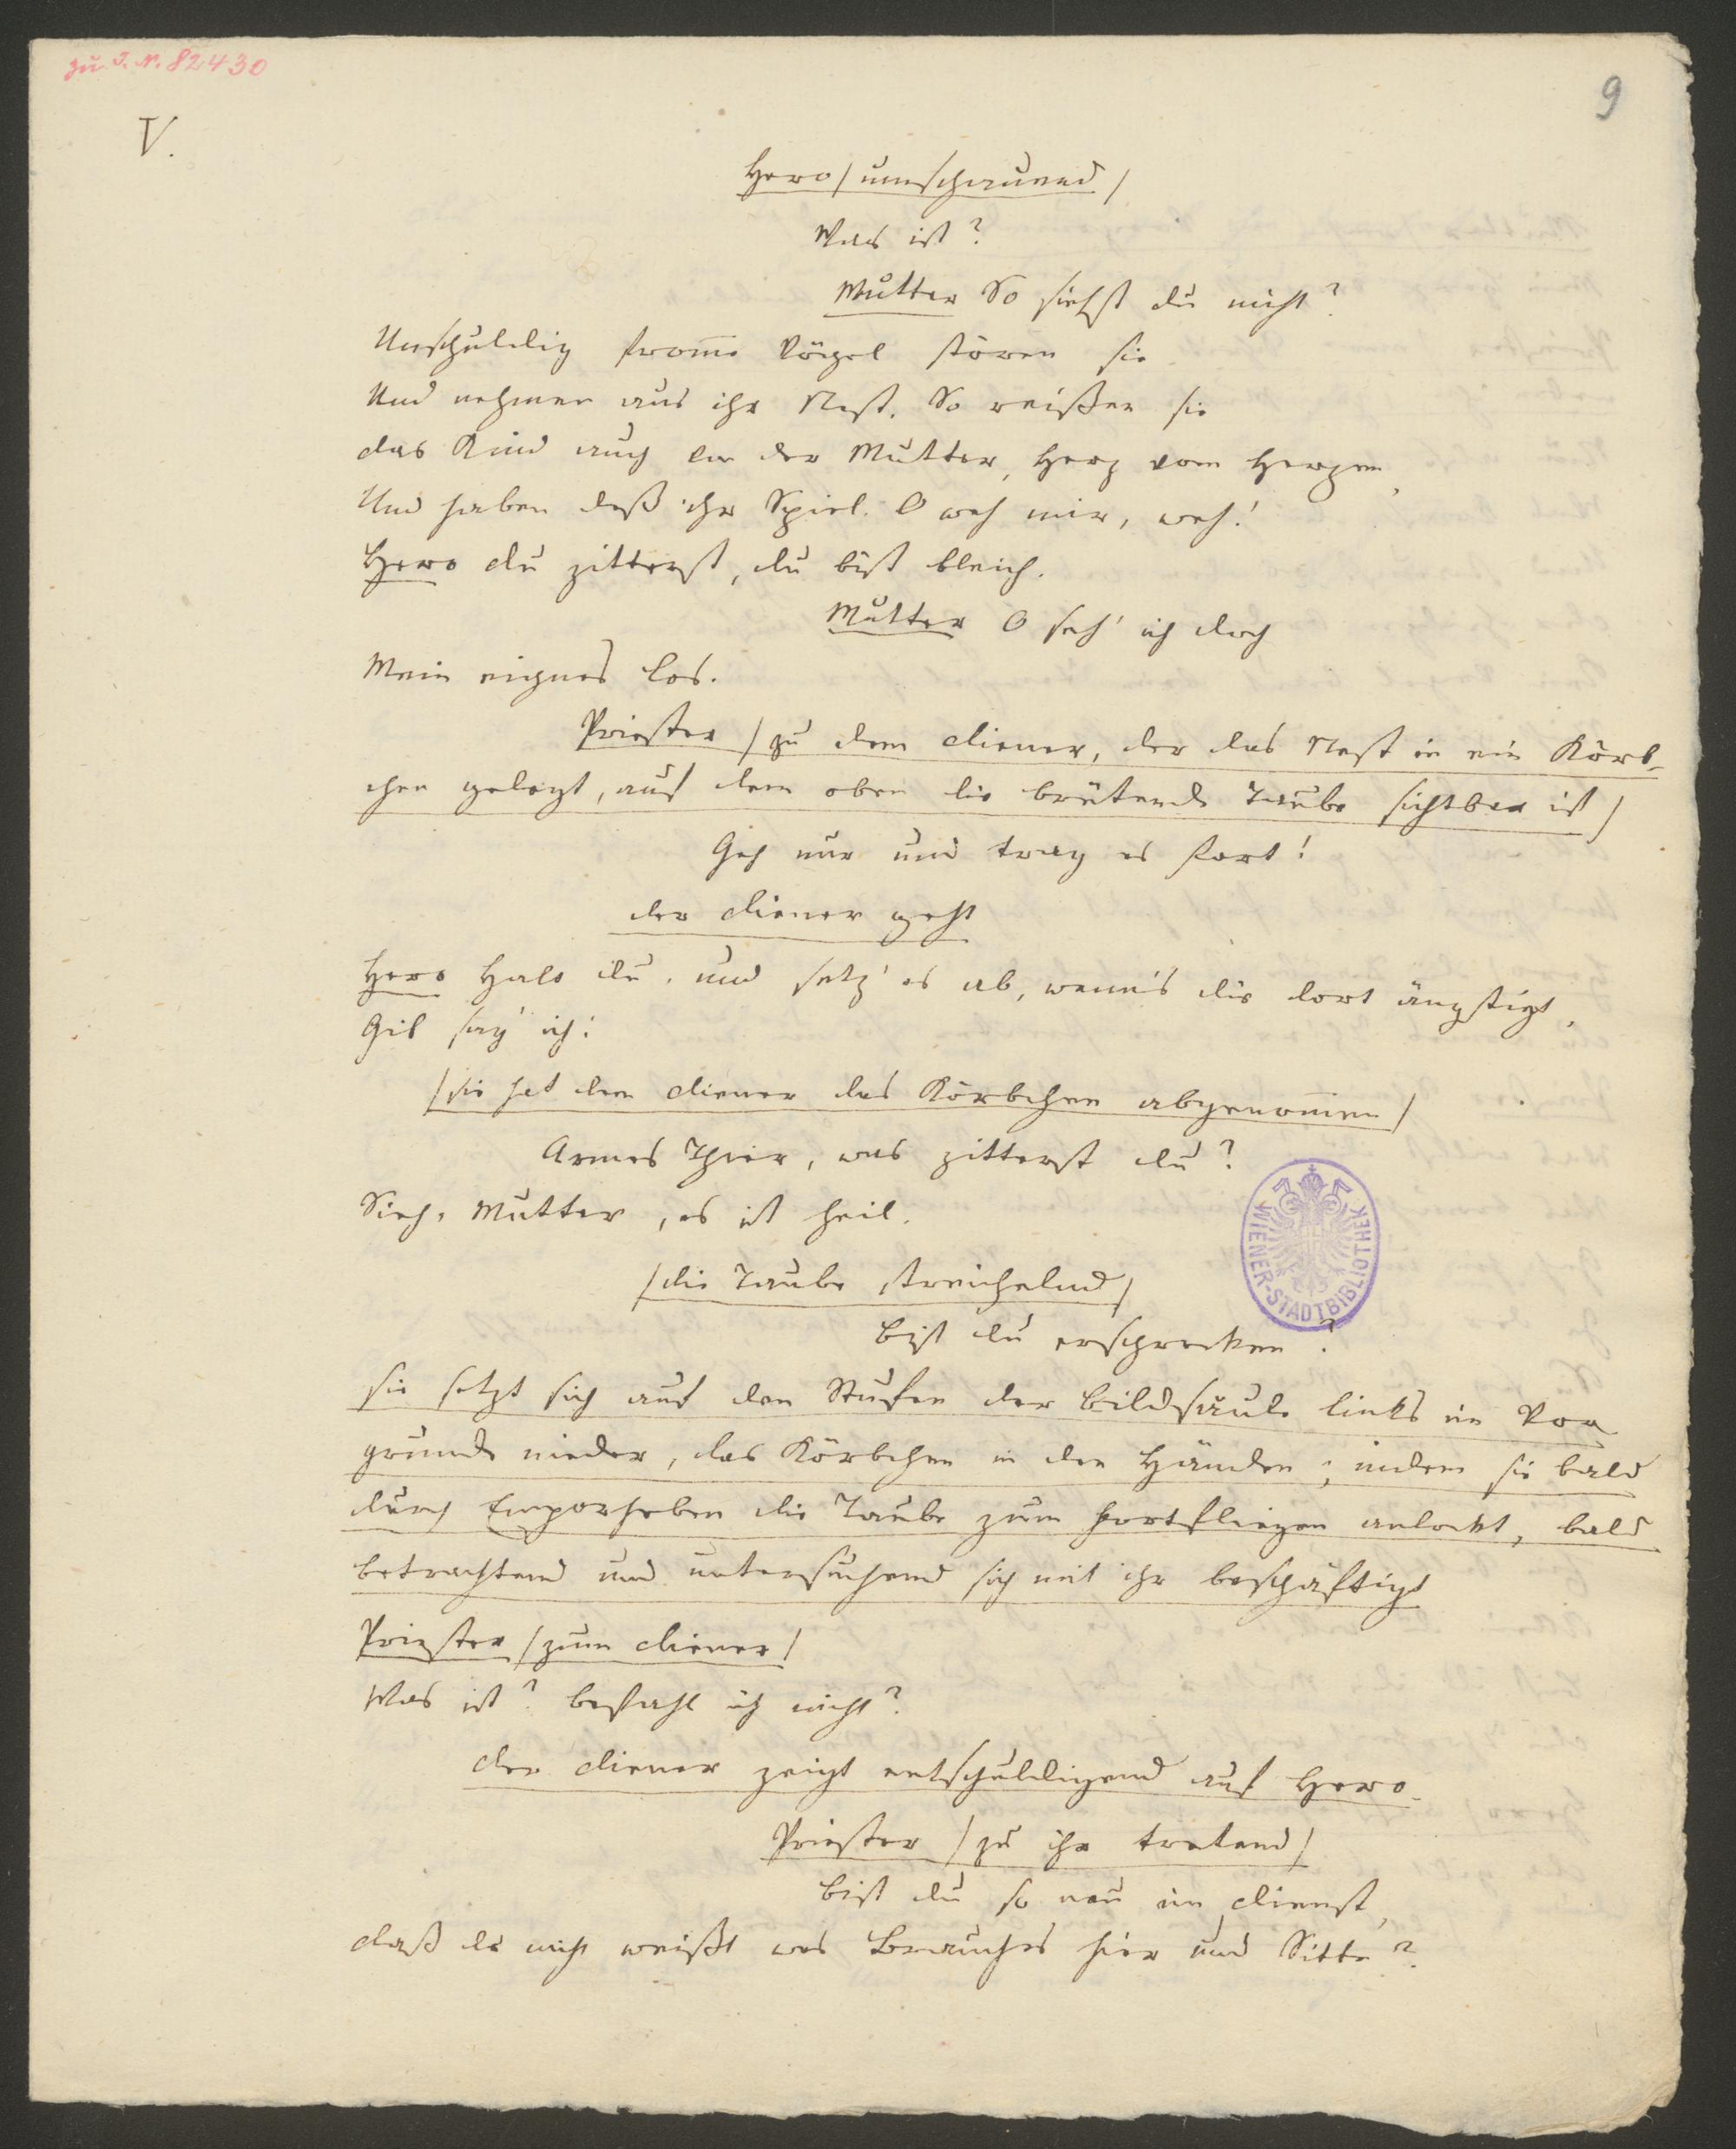 zu I. N. 82430
9
V.
Hero / umschauend /
Was ist?
Mutter So siehst du nicht?
Unschuldig from̅e Vögel stören sie
Und nehmen aus ihr Nest. So reißen sie
das Kind auch von der Mutter, Herz vom Herzen,
Und haben deß ihr Spiel. O weh mir, weh!
Hero du zitterst, du bist bleich.
Mutter O seh' ich doch
Mein eignes Los.
Priester / zu dem diener, der das Nest in ein Körb-
chen gelegt, auf dem oben die brütende Taube sichtbar ist /
Geh nur und trag es fort!
der diener geht
Hero Halt du, und setz' es ab, wenn's dir dort ängstigt,
Gib sag' ich!
/ sie hat dem diener das Körbchen abgenom̅en /
Armes Thier, was zitterst du?
Sieh, Mutter, es ist heil.
/ die Taube streichelnd /
bist du erschrocken?
WIENER-STADTBIBLIOTHEK
sie setzt sich auf den Stufen der bildsäule links im Vor
grunde nieder, das Körbchen in den Händen; indem sie bald
durch Emporheben die Taube zum Fortfliegen anlockt, bald
betrachtend und untersuchend sich mit ihr beschäftigt
Priester / zum diener /
Was ist? befahl ich nicht?
der diener zeigt entschuldigend auf Hero.
Priester / zu ihr tretend /
bist du so neu im dienst,
daß du nicht weißt was Brauches hier und Sitte?